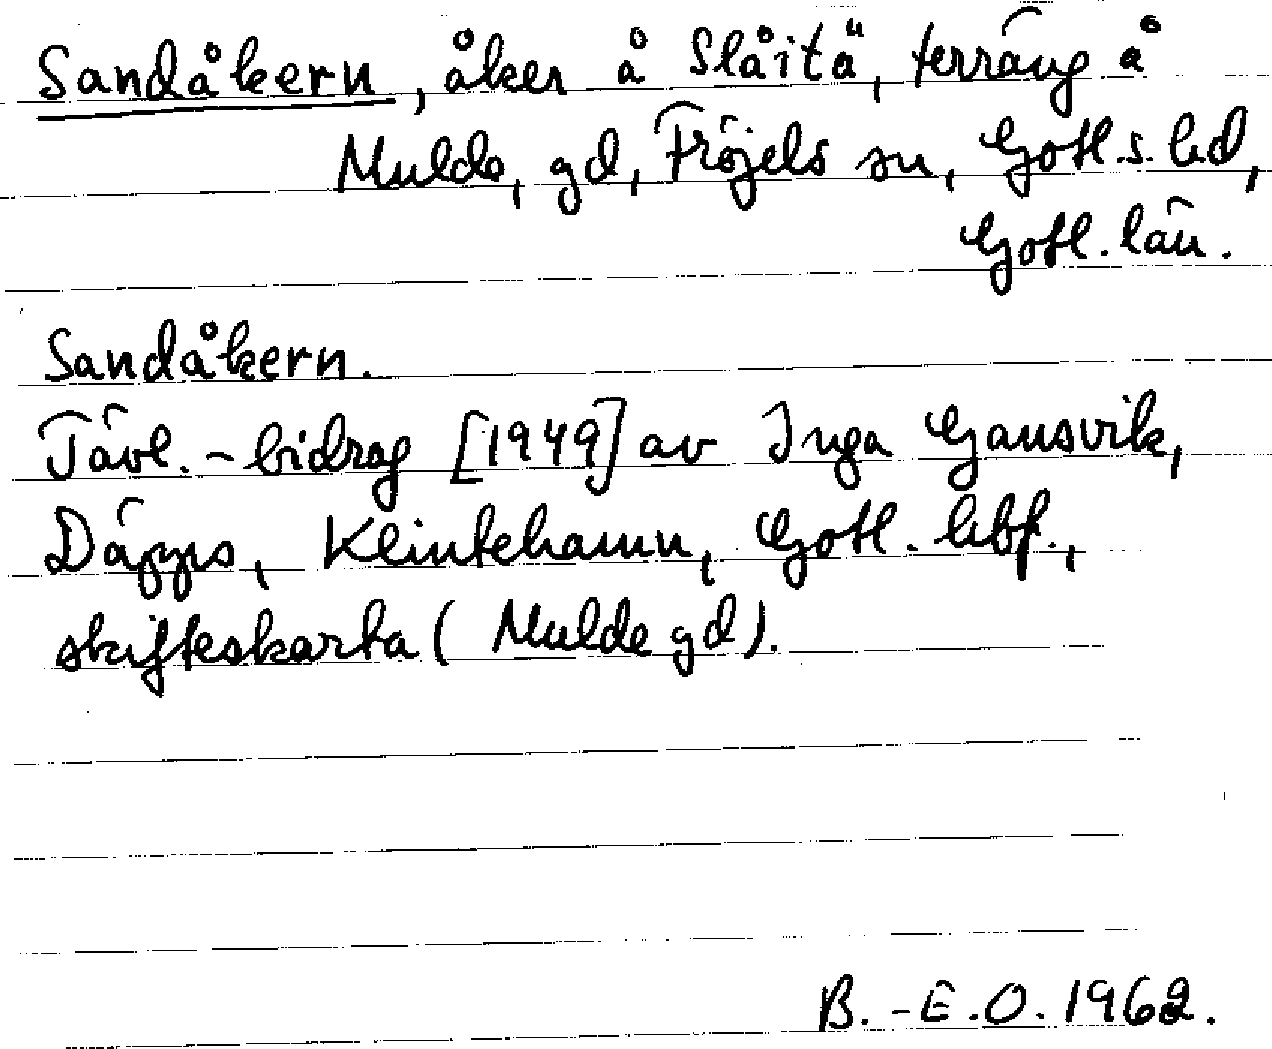 Sandåkern, åker å Slåitä, terräng å
Mulde, gd, Fröjels sn, Gotl. s. hd,
Gotl. län.
Sandåkern.
Tävl.-bidrag [1949] av Inga Gansvik,
Däpps, Klintehamn, Gotl. hbf.,
skifteskarta (Mulde gd).
B.-E.O. 1962.